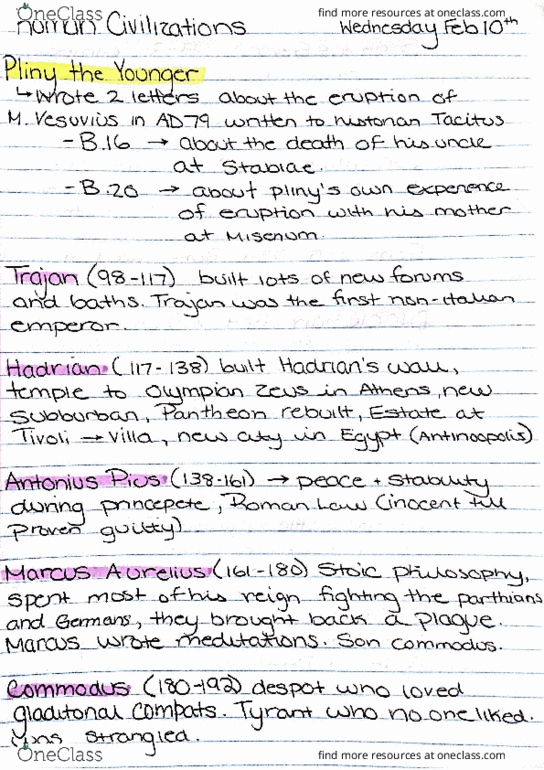 OneClass
find more resources at oneclass.com
Human Civilizations Wednesday Feb 10th
Pliny the Younger
↳ Wrote 2 letters about the eruption of
M. Vesuvius in AD79 written to historian Tacitus
- B.16 → about the death of his uncle
at Stabiae.
- B.20 → about pliny's own experience
of eruption with his mother
at Misenum.
Trajan (98-117) built lots of new forums
and baths. Trajan was the first non-italian
emperor.
Hadrian (117-138) built Hadrian's wall,
temple to Olympian Zeus in Athens, new
Subburban, Pantheon rebuilt, Estate at
Tivoli → Villa, new city in Egypt (Antinoopolis)
Antonius Pius (138-161) → peace + stability
during princepete, Roman Law (inocent till
proven guilty)
Marcus Aurelius (161-180) Stoic philosophy,
spent most of his reign fighting the parthians
and Germans, they brought back a plague.
Marcus wrote meditations. Son commodus.
Commodus (180-192) despot who loved
gladitorial compats. Tyrant who no one liked.
was strangled.
OneClass
find more resources at oneclass.com